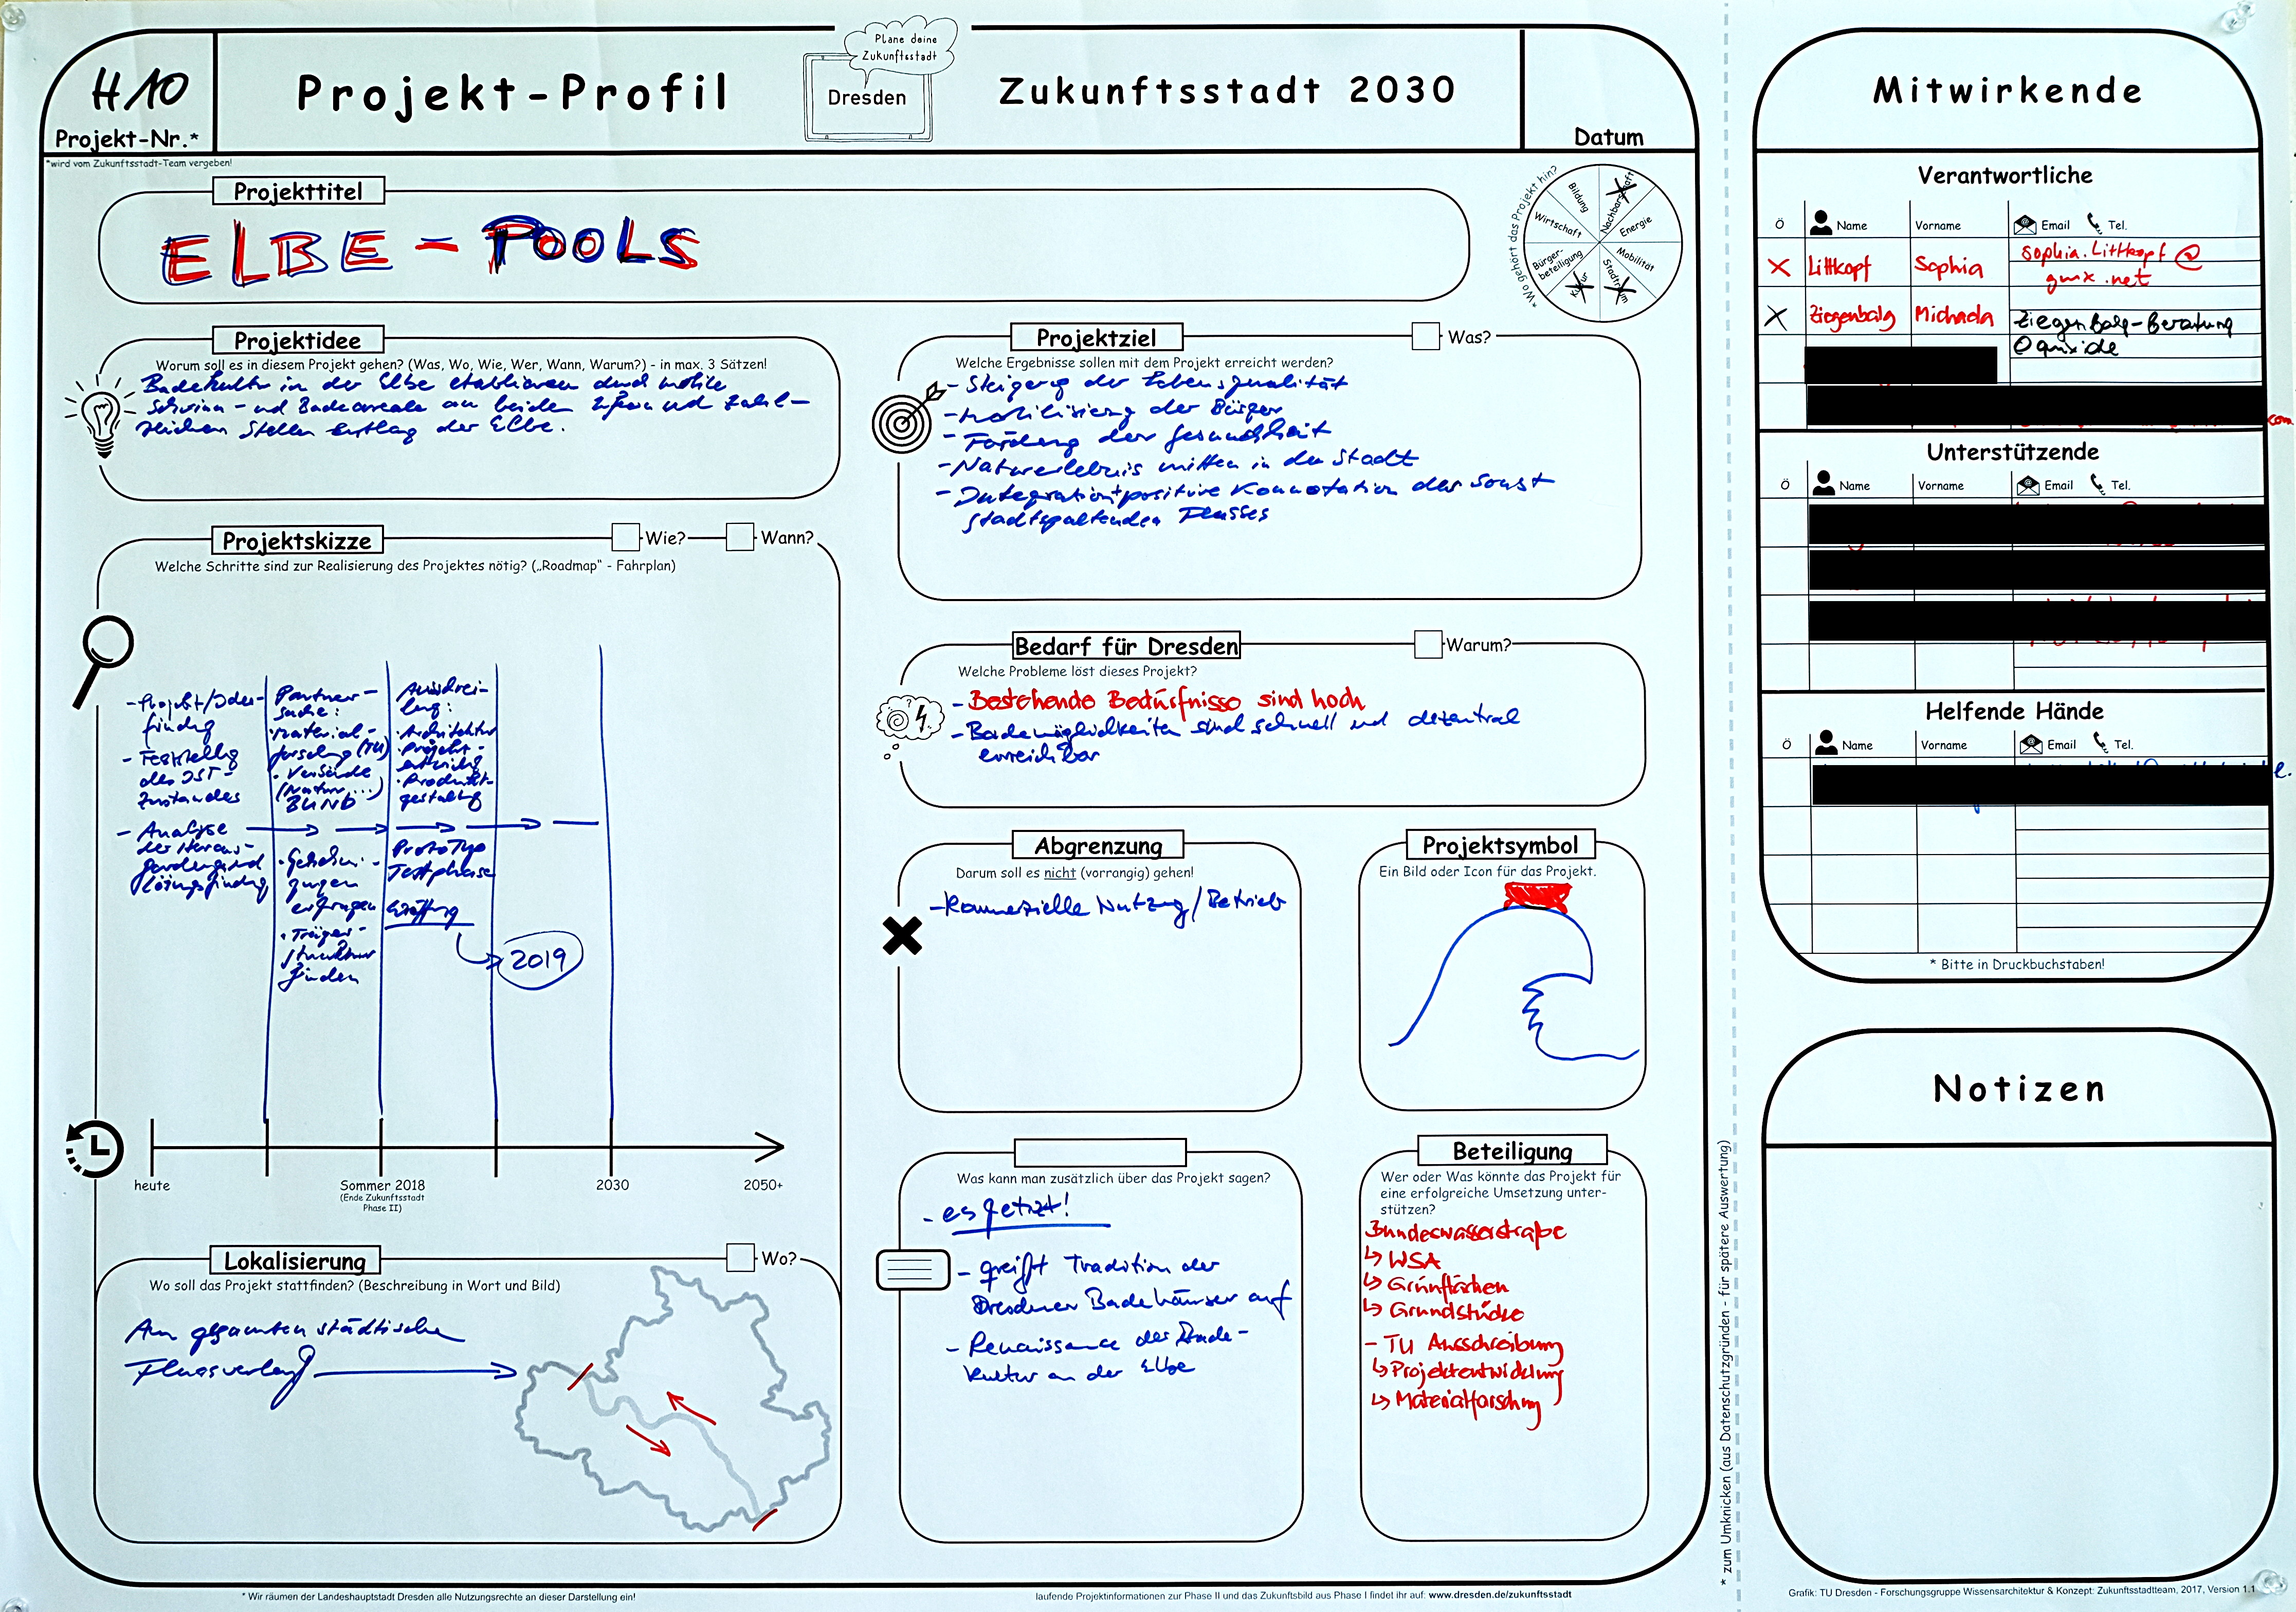 H10
Projekt-Nr.*
*wird vom Zukunftsstadt-Team vergeben!
Projekt-Profil
Plane deine
Zukunftsstadt
Dresden
Zukunftsstadt 2030
Datum
Projekttitel
ELBE - POOLS
*Wo gehört das Projekt hin?
Bildung
Nachbarschaft
Wirtschaft
Energie
Bürger-
beteiligung
Mobilität
Kultur
Stadtraum
Projektidee
Worum soll es in diesem Projekt gehen? (Was, Wo, Wie, Wer, Wann, Warum?) - in max. 3 Sätzen!
Badekultur in der Elbe etablieren durch mobile
Schwimm- und Badeareale an beiden Ufern und zahl-
reichen Stellen entlang der Elbe.
Projektskizze
Wie?
Wann?
Welche Schritte sind zur Realisierung des Projektes nötig? („Roadmap" - Fahrplan)
- Projekt/Ideen-
findung
- Feststellung
des IST-
Zustandes
- Analyse
der Heraus-
forderung und
Lösungsfindung
Partner-
suche:
· Material-
forschung (TU)
· Verbände
(Natur...)
BUND
· Genehmi-
gungen
erfragen
· Träger-
struktur
finden
Ausschrei-
bung:
· Architektur
· Projekt-
entwicklg
· Produkt-
gestaltung
Prototyp
Testphase
Eröffnung
2019
heute
Sommer 2018
(Ende Zukunftsstadt
Phase II)
2030
2050+
Lokalisierung
Wo?
Wo soll das Projekt stattfinden? (Beschreibung in Wort und Bild)
Am gesamten städtischen
Flussverlauf
Projektziel
Was?
Welche Ergebnisse sollen mit dem Projekt erreicht werden?
- Steigerung der Lebensqualität
- Mobilisierung der Bürger
- Förderung der Gesundheit
- Naturerlebnis mitten in der Stadt
- Integration + positive Konnotation des sonst
stadtspaltenden Flusses
Bedarf für Dresden
Warum?
Welche Probleme löst dieses Projekt?
- Bestehende Bedürfnisse sind hoch
- Bademöglichkeiten sind schnell und dezentral
erreichbar
Abgrenzung
Darum soll es nicht (vorrangig) gehen!
- Kommerzielle Nutzung/Betrieb
Projektsymbol
Ein Bild oder Icon für das Projekt.
Was kann man zusätzlich über das Projekt sagen?
- es jetzt!
- greift Tradition der
Dresdener Badehäuser auf
- Renaissance der Bade-
kultur an der Elbe
Beteiligung
Wer oder Was könnte das Projekt für
eine erfolgreiche Umsetzung unter-
stützen?
Bundeswasserstraße
↳ WSA
↳ Grünflächen
↳ Grundstücke
- TU Ausschreibung
↳ Projektentwicklung
↳ Materialforschung
* Wir räumen der Landeshauptstadt Dresden alle Nutzungsrechte an dieser Darstellung ein!
laufende Projektinformationen zur Phase II und das Zukunftsbild aus Phase I findet ihr auf: www.dresden.de/zukunftsstadt
* zum Umknicken (aus Datenschutzgründen - für spätere Auswertung)
Mitwirkende
Verantwortliche
Ö Name Vorname Email Tel.
Littkopf Sophia sophia.Littkopf@
gmx.net
Ziegenbalg Michaela Ziegenbalg-Beratung
@gmx.de
com
Unterstützende
Ö Name Vorname Email Tel.
Helfende Hände
Ö Name Vorname Email Tel.
e.
* Bitte in Druckbuchstaben!
Notizen
Grafik: TU Dresden - Forschungsgruppe Wissensarchitektur & Konzept: Zukunftsstadtteam, 2017, Version 1.1